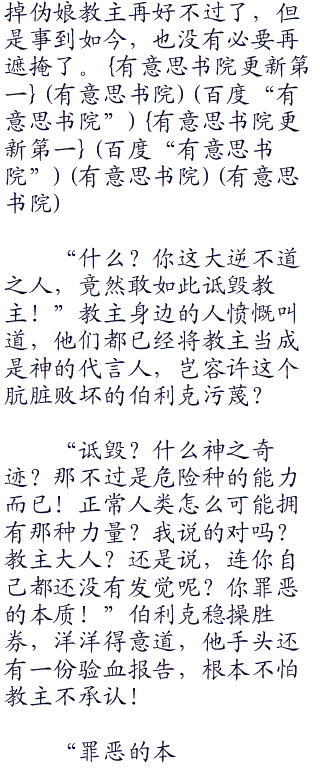 掉伪娘教主再好不过了，但
是事到如今，也没有必要再
遮掩了。{有意思书院更新第
一} (有意思书院) (百度“有
意思书院”) {有意思书院更
新第一} (百度“有意思书
院”) (有意思书院) (有意思
书院)
“什么？你这大逆不道
之人，竟然敢如此诋毁教
主！”教主身边的人愤慨叫
道，他们都已经将教主当成
是神的代言人，岂容许这个
肮脏败坏的伯利克污蔑？
“诋毁？什么神之奇
迹？那不过是危险种的能力
而已！正常人类怎么可能拥
有那种力量？我说的对吗？
教主大人？还是说，连你自
己都还没有发觉呢？你罪恶
的本质！”伯利克稳操胜
券，洋洋得意道，他手头还
有一份验血报告，根本不怕
教主不承认！
“罪恶的本